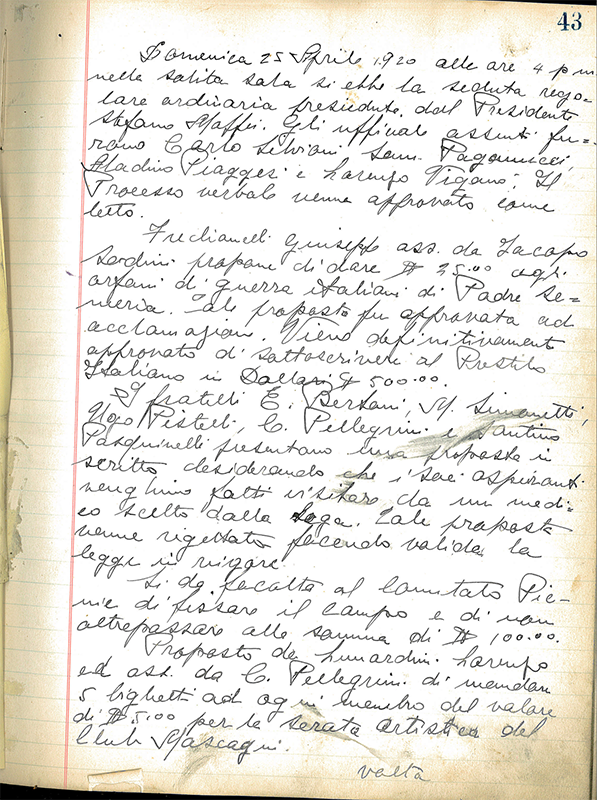 43
Domenica 25 Aprile 1920 alle ore 4 p m
nella solita sala si ebbe la seduta rego-
lare ordinaria presieduta dal Presidente
Stefano Maffei. Gli ufficiale assenti fu-
rono Carlo Silvioni Sam Paganucci,
Aladino Piaggesi e Lorenzo Vigano. Il
Processo verbale venne approvato come
letto.
Fredianelli Giuseppe ass. da Jacopo
Sodini propone di dare $ 25.00 agli
orfani di guerra italiani di Padre Se-
meria. Tale proposta fu approvata ad
acclamazioni. Viene definitivamente
approvato di sottoscrivere al Prestito
Italiano in Dollari $ 500.00.
I fratelli E. Bertani, M. Simonetti,
Ugo Pistelli, C. Pellegrini e Santino
Pasquinelli presentano una proposta in
scritto desiderando che i soci aspiranti
venghino fatti visitare da un medi-
co scelto dalla Loga. Tale proposta
venne rigettata facendo valida la
legge in vigore.
Si da facolta al Comitato Pic-
nic di fissare il campo e di non
oltrepassare alla somma di $ 100.00.
Proposto da Lunardini Lorenzo
ed ass. da C. Pellegrini di mandare
5 biglietti ad ogni membro del valore
di $ 5.00 per la serata artistica del
Club Mascagni.
volta